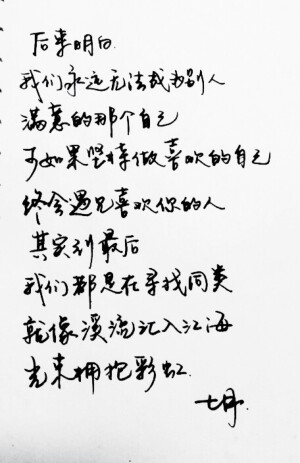 后来明白
我们永远无法成为别人
满意的那个自己
可如果坚持做喜欢的自己
终会遇见喜欢你的人
其实到最后
我们都是在寻找同类
就像溪流汇入江海
光束拥抱彩虹.
七月.